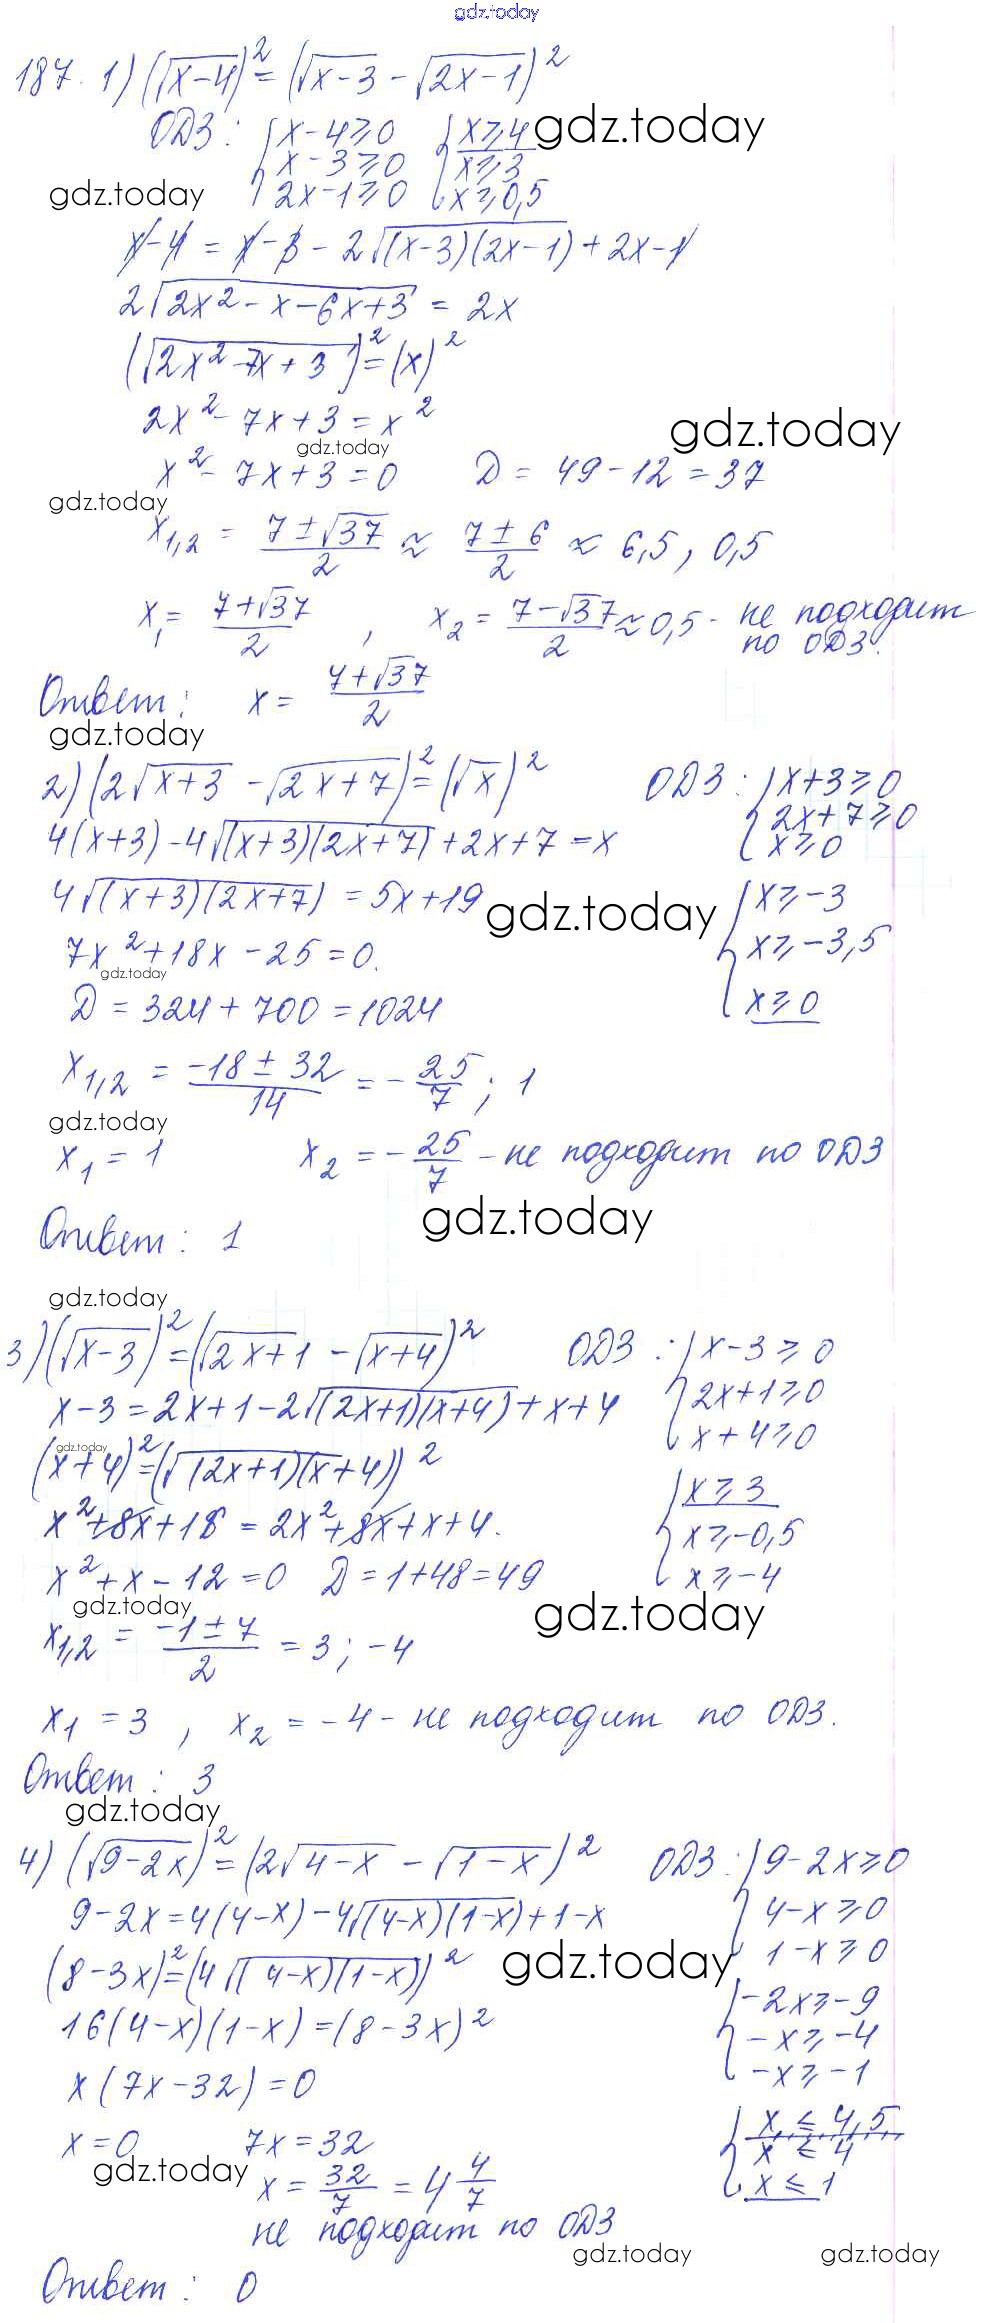 gdz.today
187. 1) (√(x-4))² = (√(x-3) - √(2x-1))²
ОДЗ: { x-4≥0 { x≥4 gdz.today
x-3≥0 x≥3
gdz.today 2x-1≥0 x≥0,5
x-4 = x-3 - 2√((x-3)(2x-1)) + 2x-1
2√(2x²-x-6x+3) = 2x
(√(2x²-7x+3))² = (x)²
2x²-7x+3 = x²
gdz.today gdz.today
x²-7x+3=0 D = 49-12 = 37
gdz.today
x₁,₂ = (7±√37)/2 ≈ (7±6)/2 ≈ 6,5, 0,5
x₁ = (7+√37)/2, x₂ = (7-√37)/2 ≈ 0,5 - не подходит
по ОДЗ.
Ответ: x = (7+√37)/2
gdz.today
2) (2√(x+3) - √(2x+7))² = (√x)² ОДЗ: { x+3≥0
2x+7≥0
4(x+3) - 4√((x+3)(2x+7)) + 2x+7 = x x≥0
4√((x+3)(2x+7)) = 5x+19 gdz.today { x≥-3
7x²+18x-25=0. x≥-3,5
gdz.today
D = 324+700 = 1024 x≥0
x₁,₂ = (-18±32)/14 = -25/7; 1
gdz.today
x₁ = 1 x₂ = -25/7 - не подходит по ОДЗ
Ответ: 1 gdz.today
gdz.today
3) (√(x-3))² = (√(2x+1) - √(x+4))² ОДЗ: { x-3≥0
x-3 = 2x+1-2√((2x+1)(x+4)) + x+4 2x+1≥0
x+4≥0
gdz.today
(x+4)² = (√((2x+1)(x+4)))²
{ x≥3
x²+8x+16 = 2x²+8x+x+4. x≥-0,5
x²+x-12=0 D=1+48=49 x≥-4
gdz.today gdz.today
x₁,₂ = (-1±7)/2 = 3; -4
x₁ = 3, x₂ = -4 - не подходит по ОДЗ.
Ответ: 3
gdz.today
4) (√(9-2x))² = (2√(4-x) - √(1-x))² ОДЗ: { 9-2x≥0
9-2x = 4(4-x) - 4√((4-x)(1-x)) + 1-x 4-x≥0
(8-3x)² = (4√((4-x)(1-x)))² gdz.today 1-x≥0
{ -2x≥-9
16(4-x)(1-x) = (8-3x)² -x≥-4
-x≥-1
x(7x-32)=0
{ x≤4,5
x=0 7x=32 x≤4
gdz.today x = 32/7 = 4 4/7 x≤1
не подходит по ОДЗ
gdz.today gdz.today
Ответ: 0